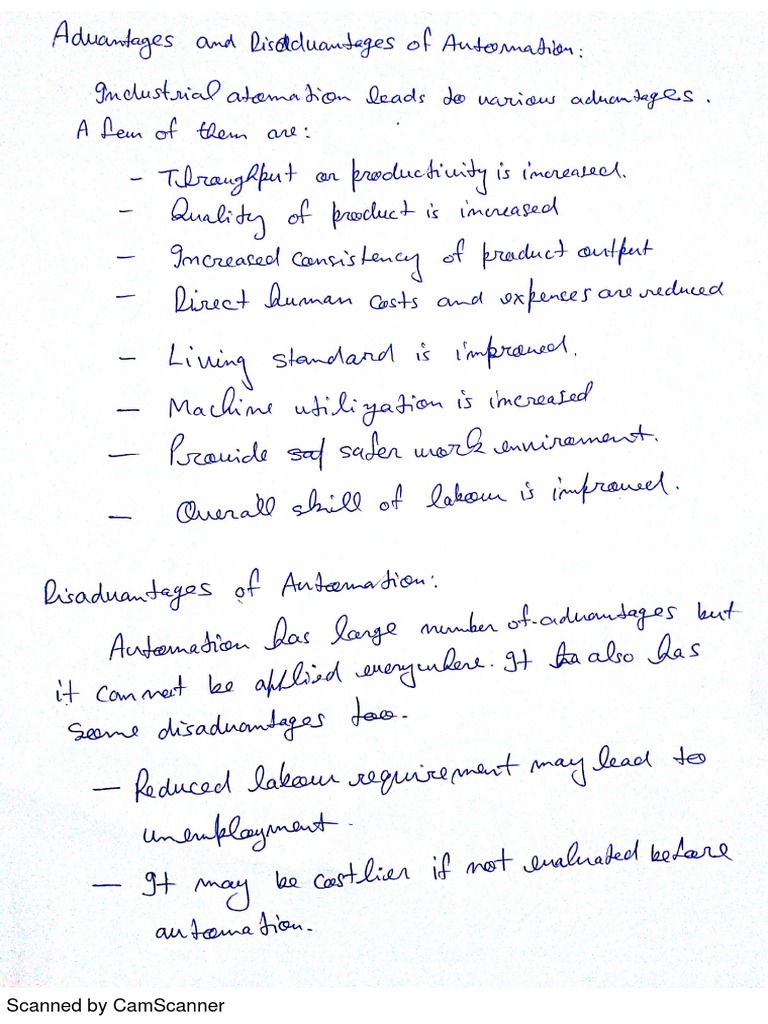 Advantages and Disadvantages of Automation:
Industrial atomation leads to various advantages.
A few of them are:
- Throughput or productivity is increased.
- Quality of product is increased
- Increased consistency of product output
- Direct human costs and expences are reduced
- Living standard is improved.
- Machine utilization is increased
- Provide saf safer work envirament.
- Overall skill of labour is improved.
Disadvantages of Automation:
Automation has large number of advantages but
it can not be applied everywhere. It ha also has
some disadvantages too.
- Reduced labour requirement may lead to
unemployment.
- It may be costlier if not evaluated before
automation.
Scanned by CamScanner